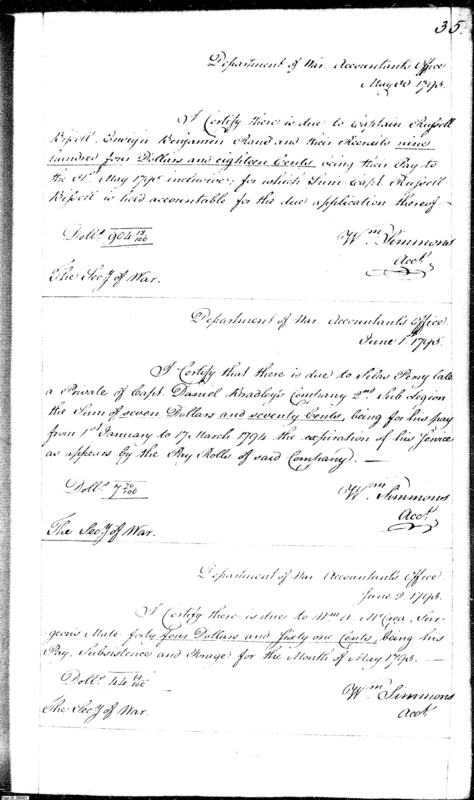 35.
Department of War Accountants Office
May 30 1795.
I Certify there is due to Captain Russell
Bissell, Ensign Benjamin Rand and their Recruits nine
hundred four Dollars and eighteen Cents being their Pay to
the 31st May 1795 inclusive; for which Sum Capt. Russell
Bissell is held accountable for the due application thereof —
Dolls. 904 18/100
Wm Simmons
Acct.
The Secy of War.
Department of War Accountants Office
June 1st 1795.
I Certify that there is due to Silas Pomy late
a Private of Capt. Daniel Bradley's Company 2nd Sub Legion
the Sum of seven Dollars and seventy Cents, being for his pay
from 1st January to 17 March 1794 the expiration of his Service
as appears by the Pay Rolls of said Company. —
Dolls. 7 70/100
Wm Simmons
Acct.
The Secy of War.
Department of War Accountants Office
June 2. 1795.
I Certify there is due to Wm A. McCrea, Sur-
geon's Mate forty four Dollars and sixty one Cents, being his
Pay, Subsistence and Forage for the Month of May 1795. —
Dolls. 44 61/100
Wm Simmons
Acct.
The Secy of War.